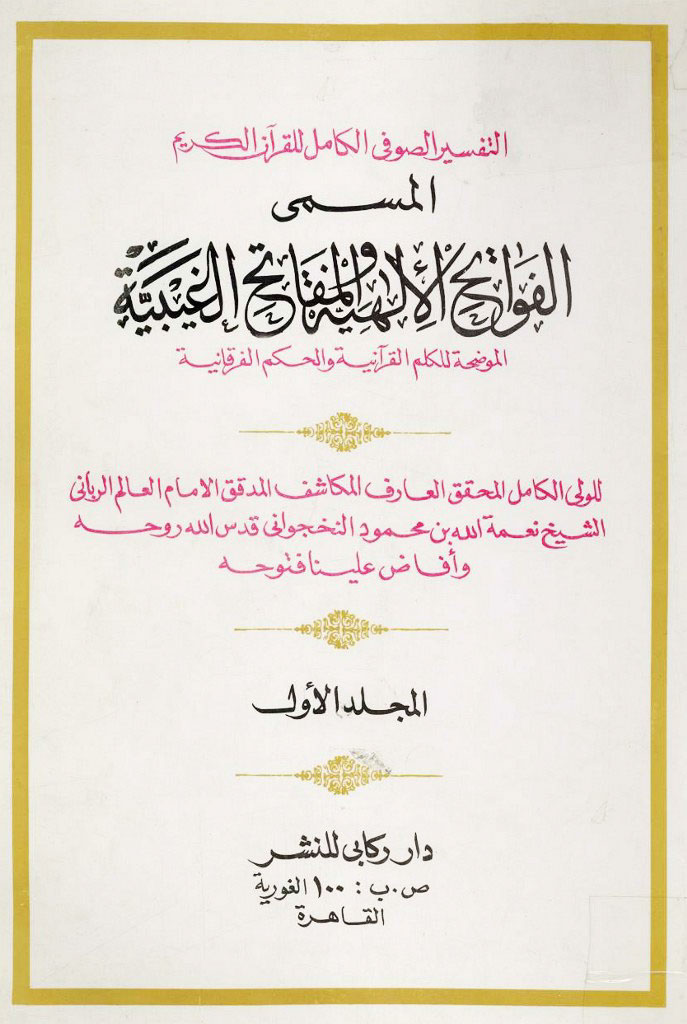 التفسير الصوفى الكامل للقرآن الكريم
المسمى
الفَوَاتِحُ الْإِلٰهِيَّة وَالمَفَاتِحُ الغَيْبِيَّة
الموضحة للكلم القرآنية والحكم الفرقانية
للولى الكامل المحقق العارف المكاشف المدقق الامام العالم الربانى
الشيخ نعمة الله بن محمود النخجوانى قدس الله روحه
وأفاض علينا فتوحه
المجلد الأول
دار ركابى للنشر
ص.ب : ١٠٠ الغورية
القاهرة